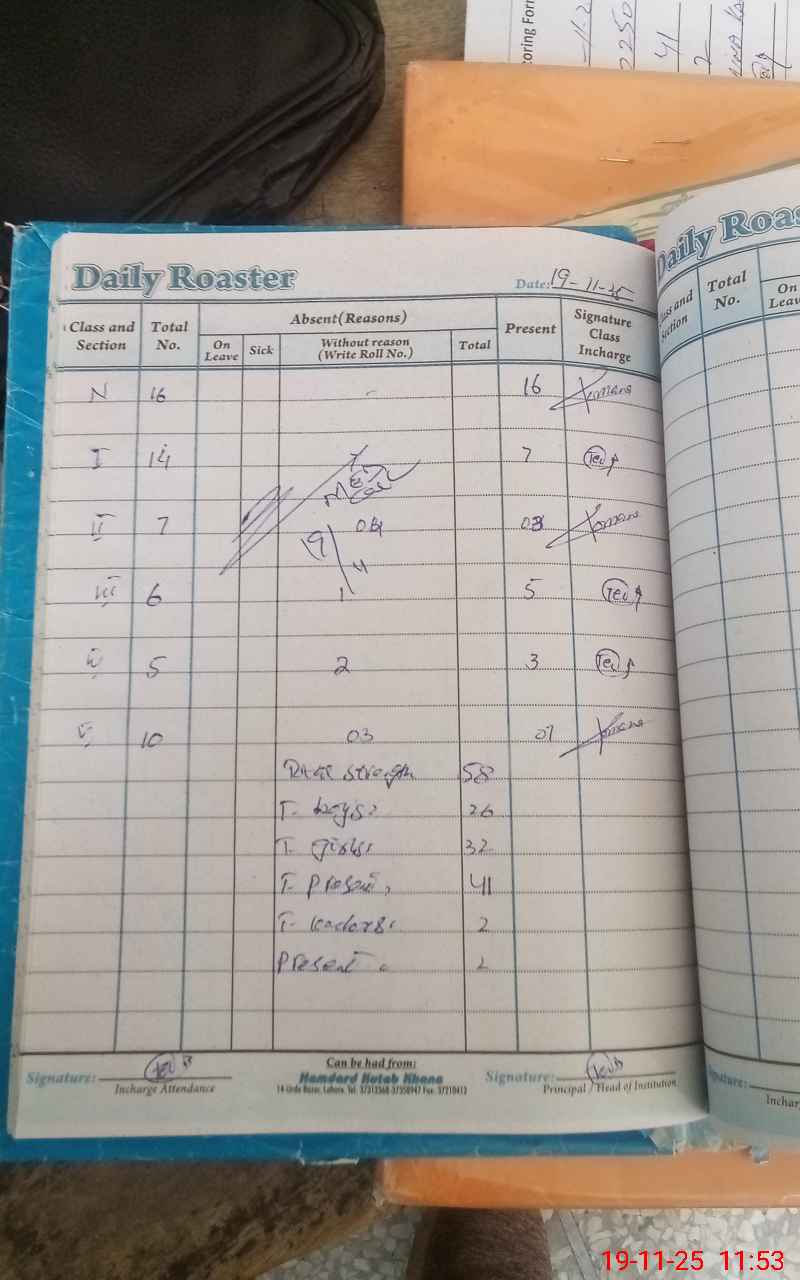 oring For
-11-2
2250
41
2
Daily Roaster
Date: 19-11-25
Class and Section
Total No.
Absent(Reasons)
On Leave
Sick
Without reason (Write Roll No.)
Total
Present
Signature Class Incharge
N 16 - 16
I 14 7 7
II 7 04 03
19/11
III 6 1 5
IV 5 2 3
V 10 03 07
strength 58
T. boys: 26
T. girls: 32
T. Present, 41
T. 2
Present 2
Signature:
Incharge Attendance
Can be had from:
Hamdard Kutab Khana
14-Urdu Bazar, Lahore. Tel:
Signature:
Principal / Head of Institution
Daily Roas
Class and Section
Total No.
On Leave
Signature:
Inchar
19-11-25 11:53